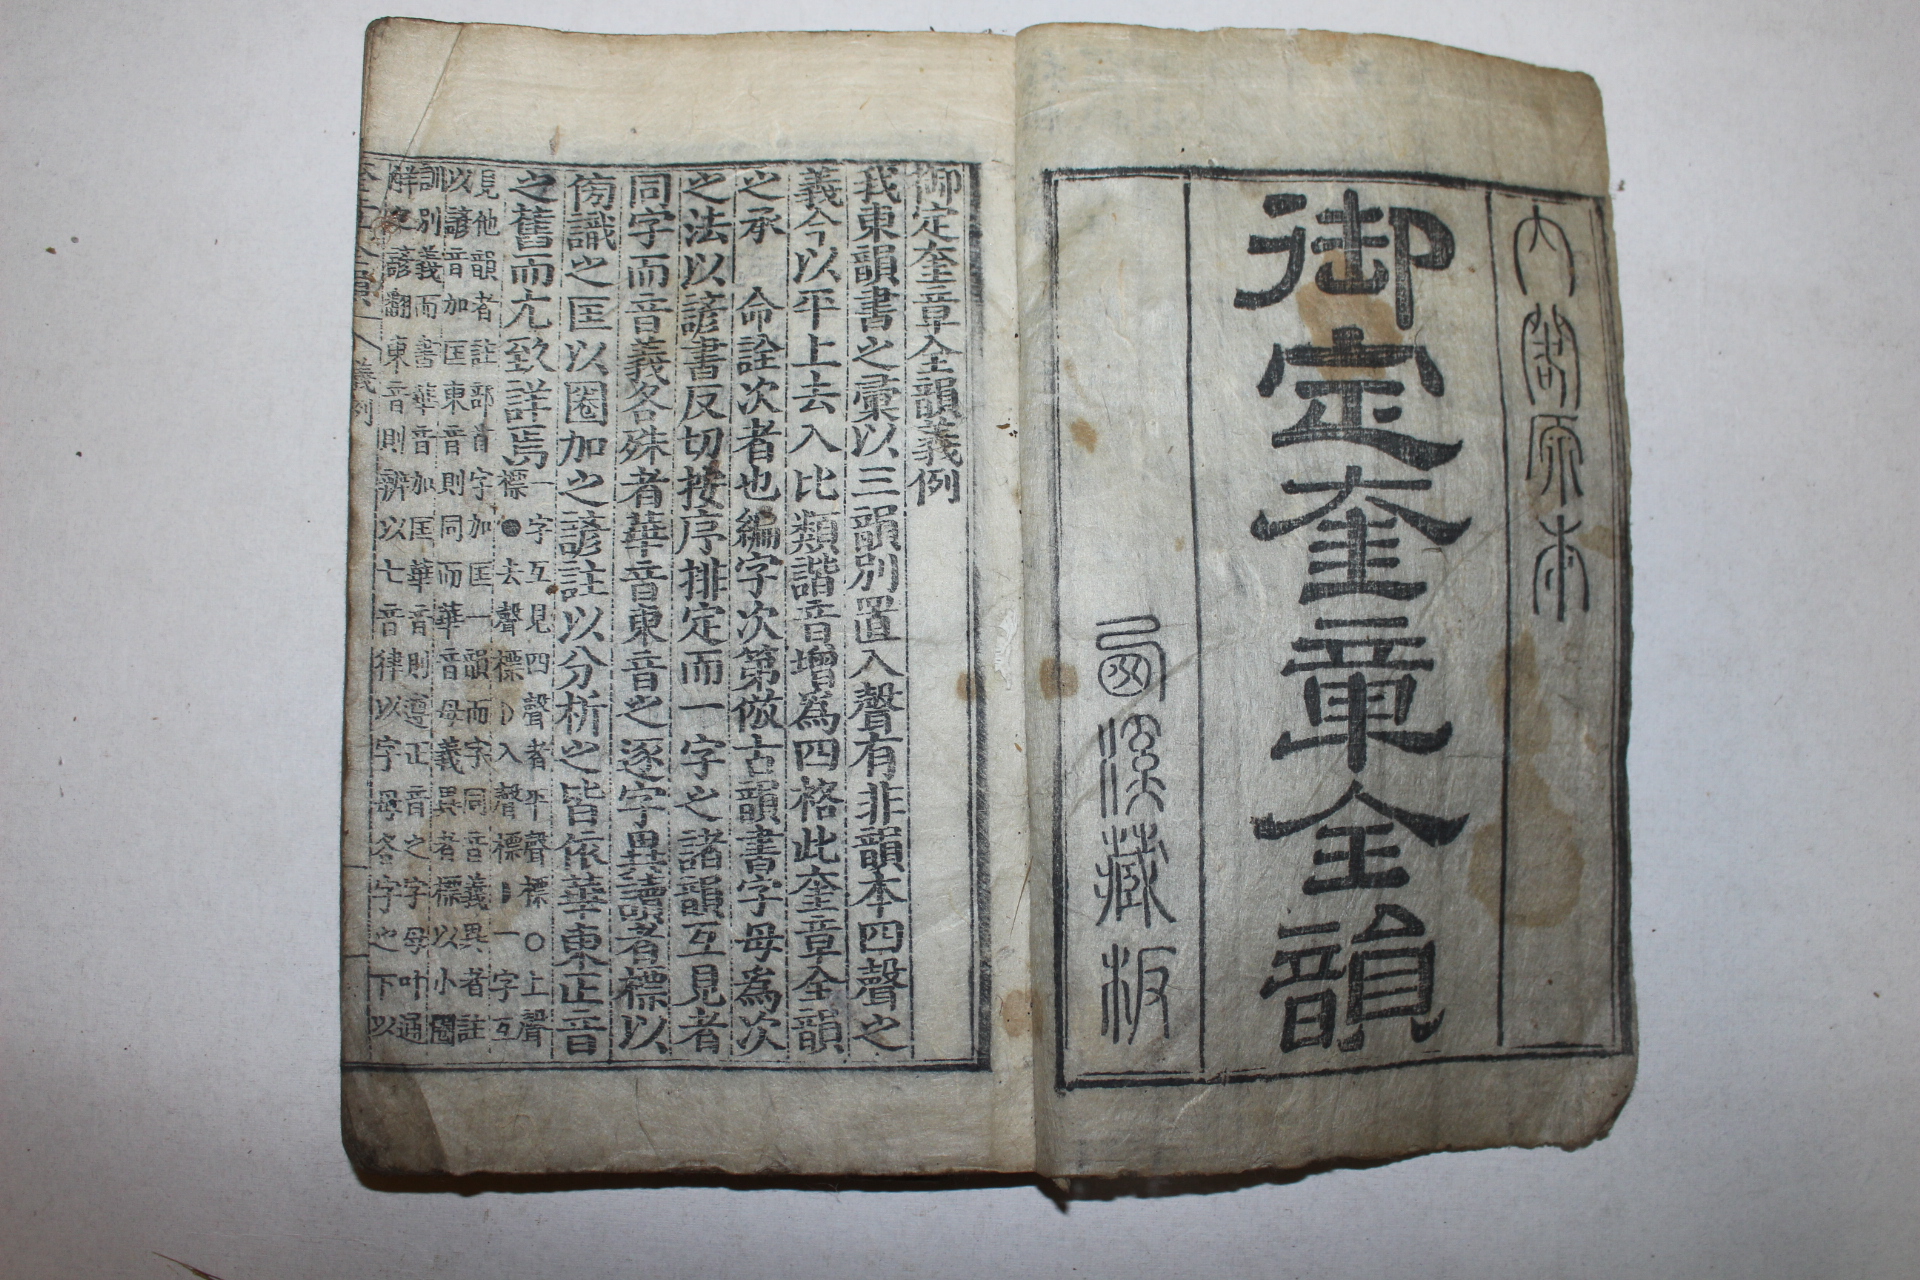 內閣原本
御定奎章全韻
藏板
御定奎章全韻義例
我東韻書之彙以三韻別置入聲有非韻本四聲之
義今以平上去入比類諧音增為四格此奎章全韻
之承　命詮次者也編字次第倣古韻書字母為次
之法以諺書反切按序排定而一字之諸韻互見者
同字而音義各殊者華音東音之逐字異讀者標以
傍識之匡以圈加之諺註以分析之皆依華東正音
之舊而尢致詳焉
一字互見四聲者平聲標○上聲
標●去聲標☽入聲標❙一字互
見他韻者註部首字加匡一韻而字同音義異者註
以諺音加匡東音則同而華音母義異者標以小圈
訓別義而書華音加匡華音則遵正音之字母叶通
諺翻東音則辨以七音律以字母各字之下以
奎章全韻　義例